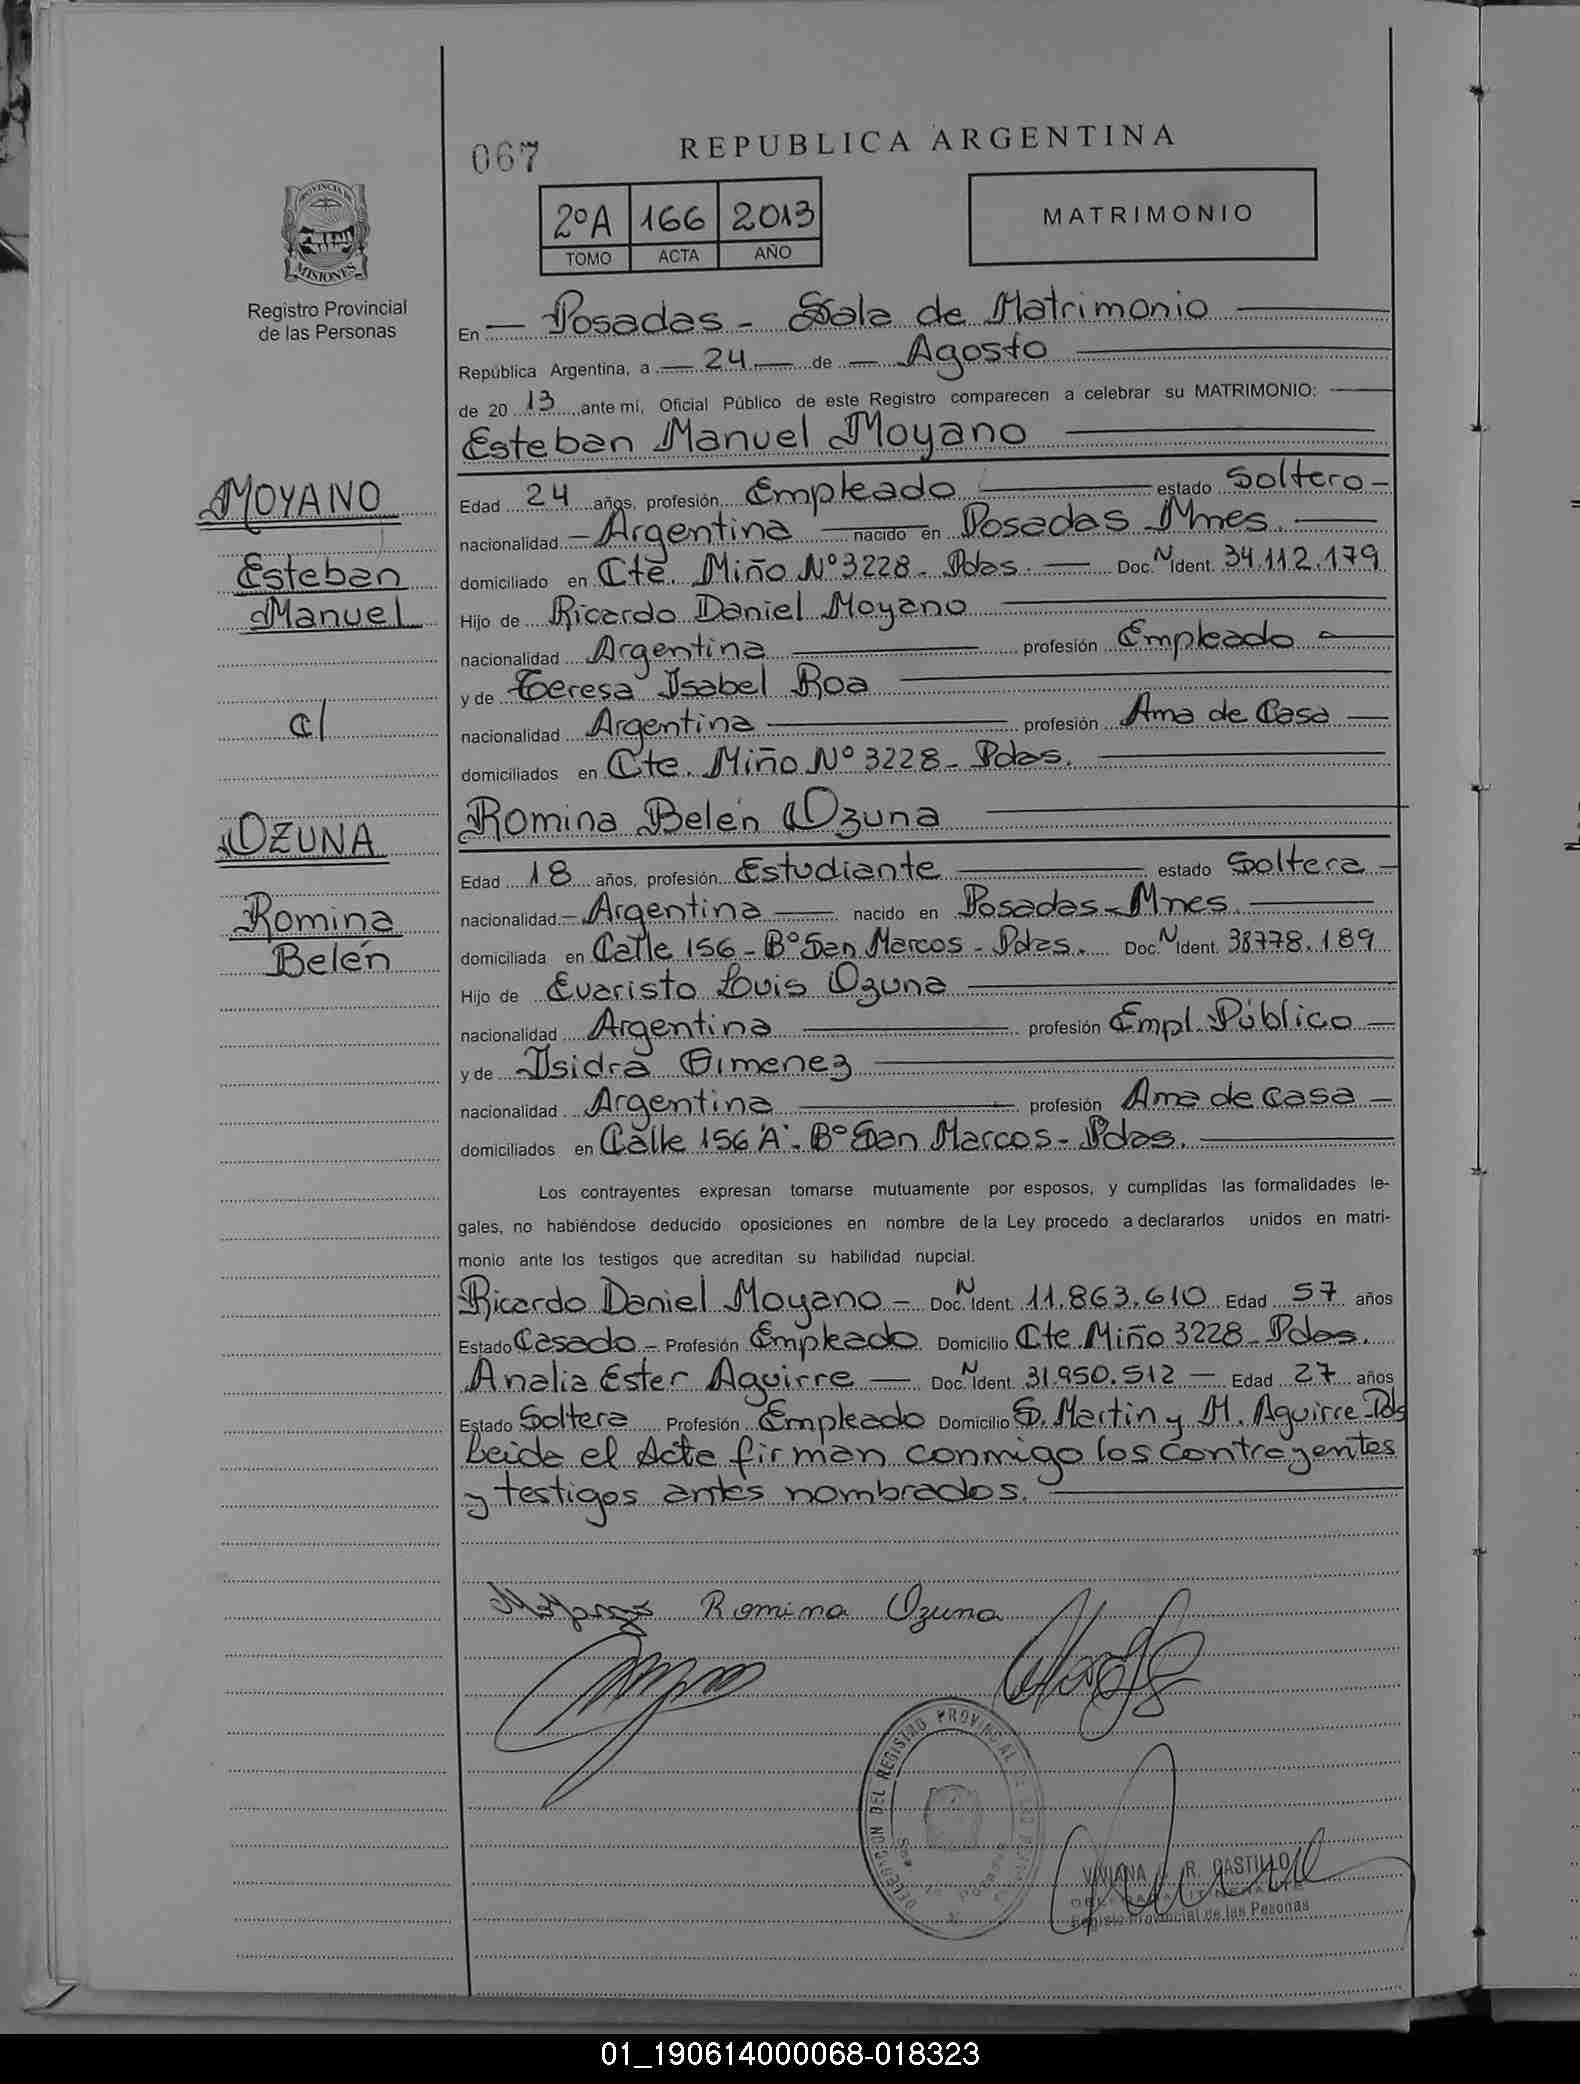 067
REPUBLICA ARGENTINA
2ºA 166 2013
TOMO ACTA AÑO
MATRIMONIO
PROVINCIA DE
MISIONES
Registro Provincial
de las Personas
En — Posadas - Sala de Matrimonio —
República Argentina, a — 24 — de — Agosto —
de 20 13 ante mi, Oficial Público de este Registro comparecen a celebrar su MATRIMONIO: —
Esteban Manuel Moyano —
MOYANO
Esteban
Manuel
c/
OZUNA
Romina
Belén
Edad 24 años, profesión Empleado — estado Soltero -
nacionalidad - Argentina — nacido en Posadas - Mnes. —
domiciliado en Cte. Miño Nº 3228 - Pdas. — Doc. N Ident. 34.112.179
Hijo de Ricardo Daniel Moyano —
nacionalidad Argentina — profesión Empleado —
y de Teresa Isabel Roa —
nacionalidad Argentina — profesión Ama de Casa —
domiciliados en Cte. Miño Nº 3228 - Pdas. —
Romina Belén Ozuna —
Edad 18 años, profesión Estudiante — estado Soltera -
nacionalidad - Argentina — nacido en Posadas - Mnes. —
domiciliada en Calle 156 - Bº San Marcos - Pdas. Doc. N Ident. 38778.189
Hijo de Evaristo Luis Ozuna —
nacionalidad Argentina — profesión Empl. Público —
y de Isidra Gimenez —
nacionalidad Argentina — profesión Ama de casa -
domiciliados en Calle 156 "A" - Bº San Marcos - Pdas. —
Los contrayentes expresan tomarse mutuamente por esposos, y cumplidas las formalidades le-
gales, no habiéndose deducido oposiciones en nombre de la Ley procedo a declararlos unidos en matri-
monio ante los testigos que acreditan su habilidad nupcial.
Ricardo Daniel Moyano - Doc. N Ident. 11.863.610 Edad 57 años
Estado Casado - Profesión Empleado Domicilio Cte. Miño 3228 - Pdas.
Analia Ester Aguirre — Doc. N Ident. 31.950.512 — Edad 27 años
Estado Soltera Profesión Empleado Domicilio S. Martin y M. Aguirre - Pds
Leida el Acta firman conmigo los contrayentes
y testigos antes nombrados. —
Romina Ozuna
DELEGACION DEL REGISTRO PROVINCIAL DE LAS
VIVIANA R. CASTILLO
Registro Provincial de las Pesonas
01_190614000068-018323